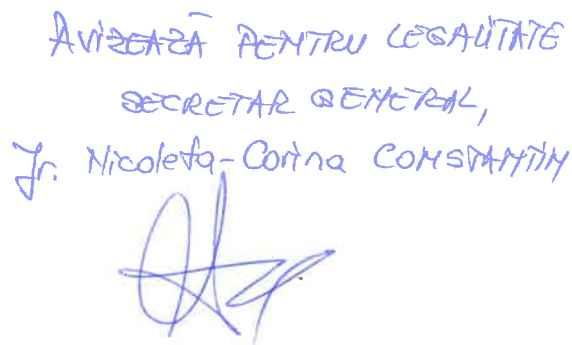 AVIZEAZĂ PENTRU LEGALITATE
SECRETAR GENERAL,
Jr. Nicoleta-Corina CONSTANTIN